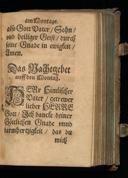 am Montage.
als Gott Vater / Sohn /
und heiliger Geist / durch
seine Gnade in ewigkeit /
Amen.
Das Nachtgebet
auff den Montag.
HErr Himlischer
Vater / getrewer
lieber HERRE
Gott / Ich dancke deiner
Göttlichen Gnade und
barmhertzigkeit / das du
mich